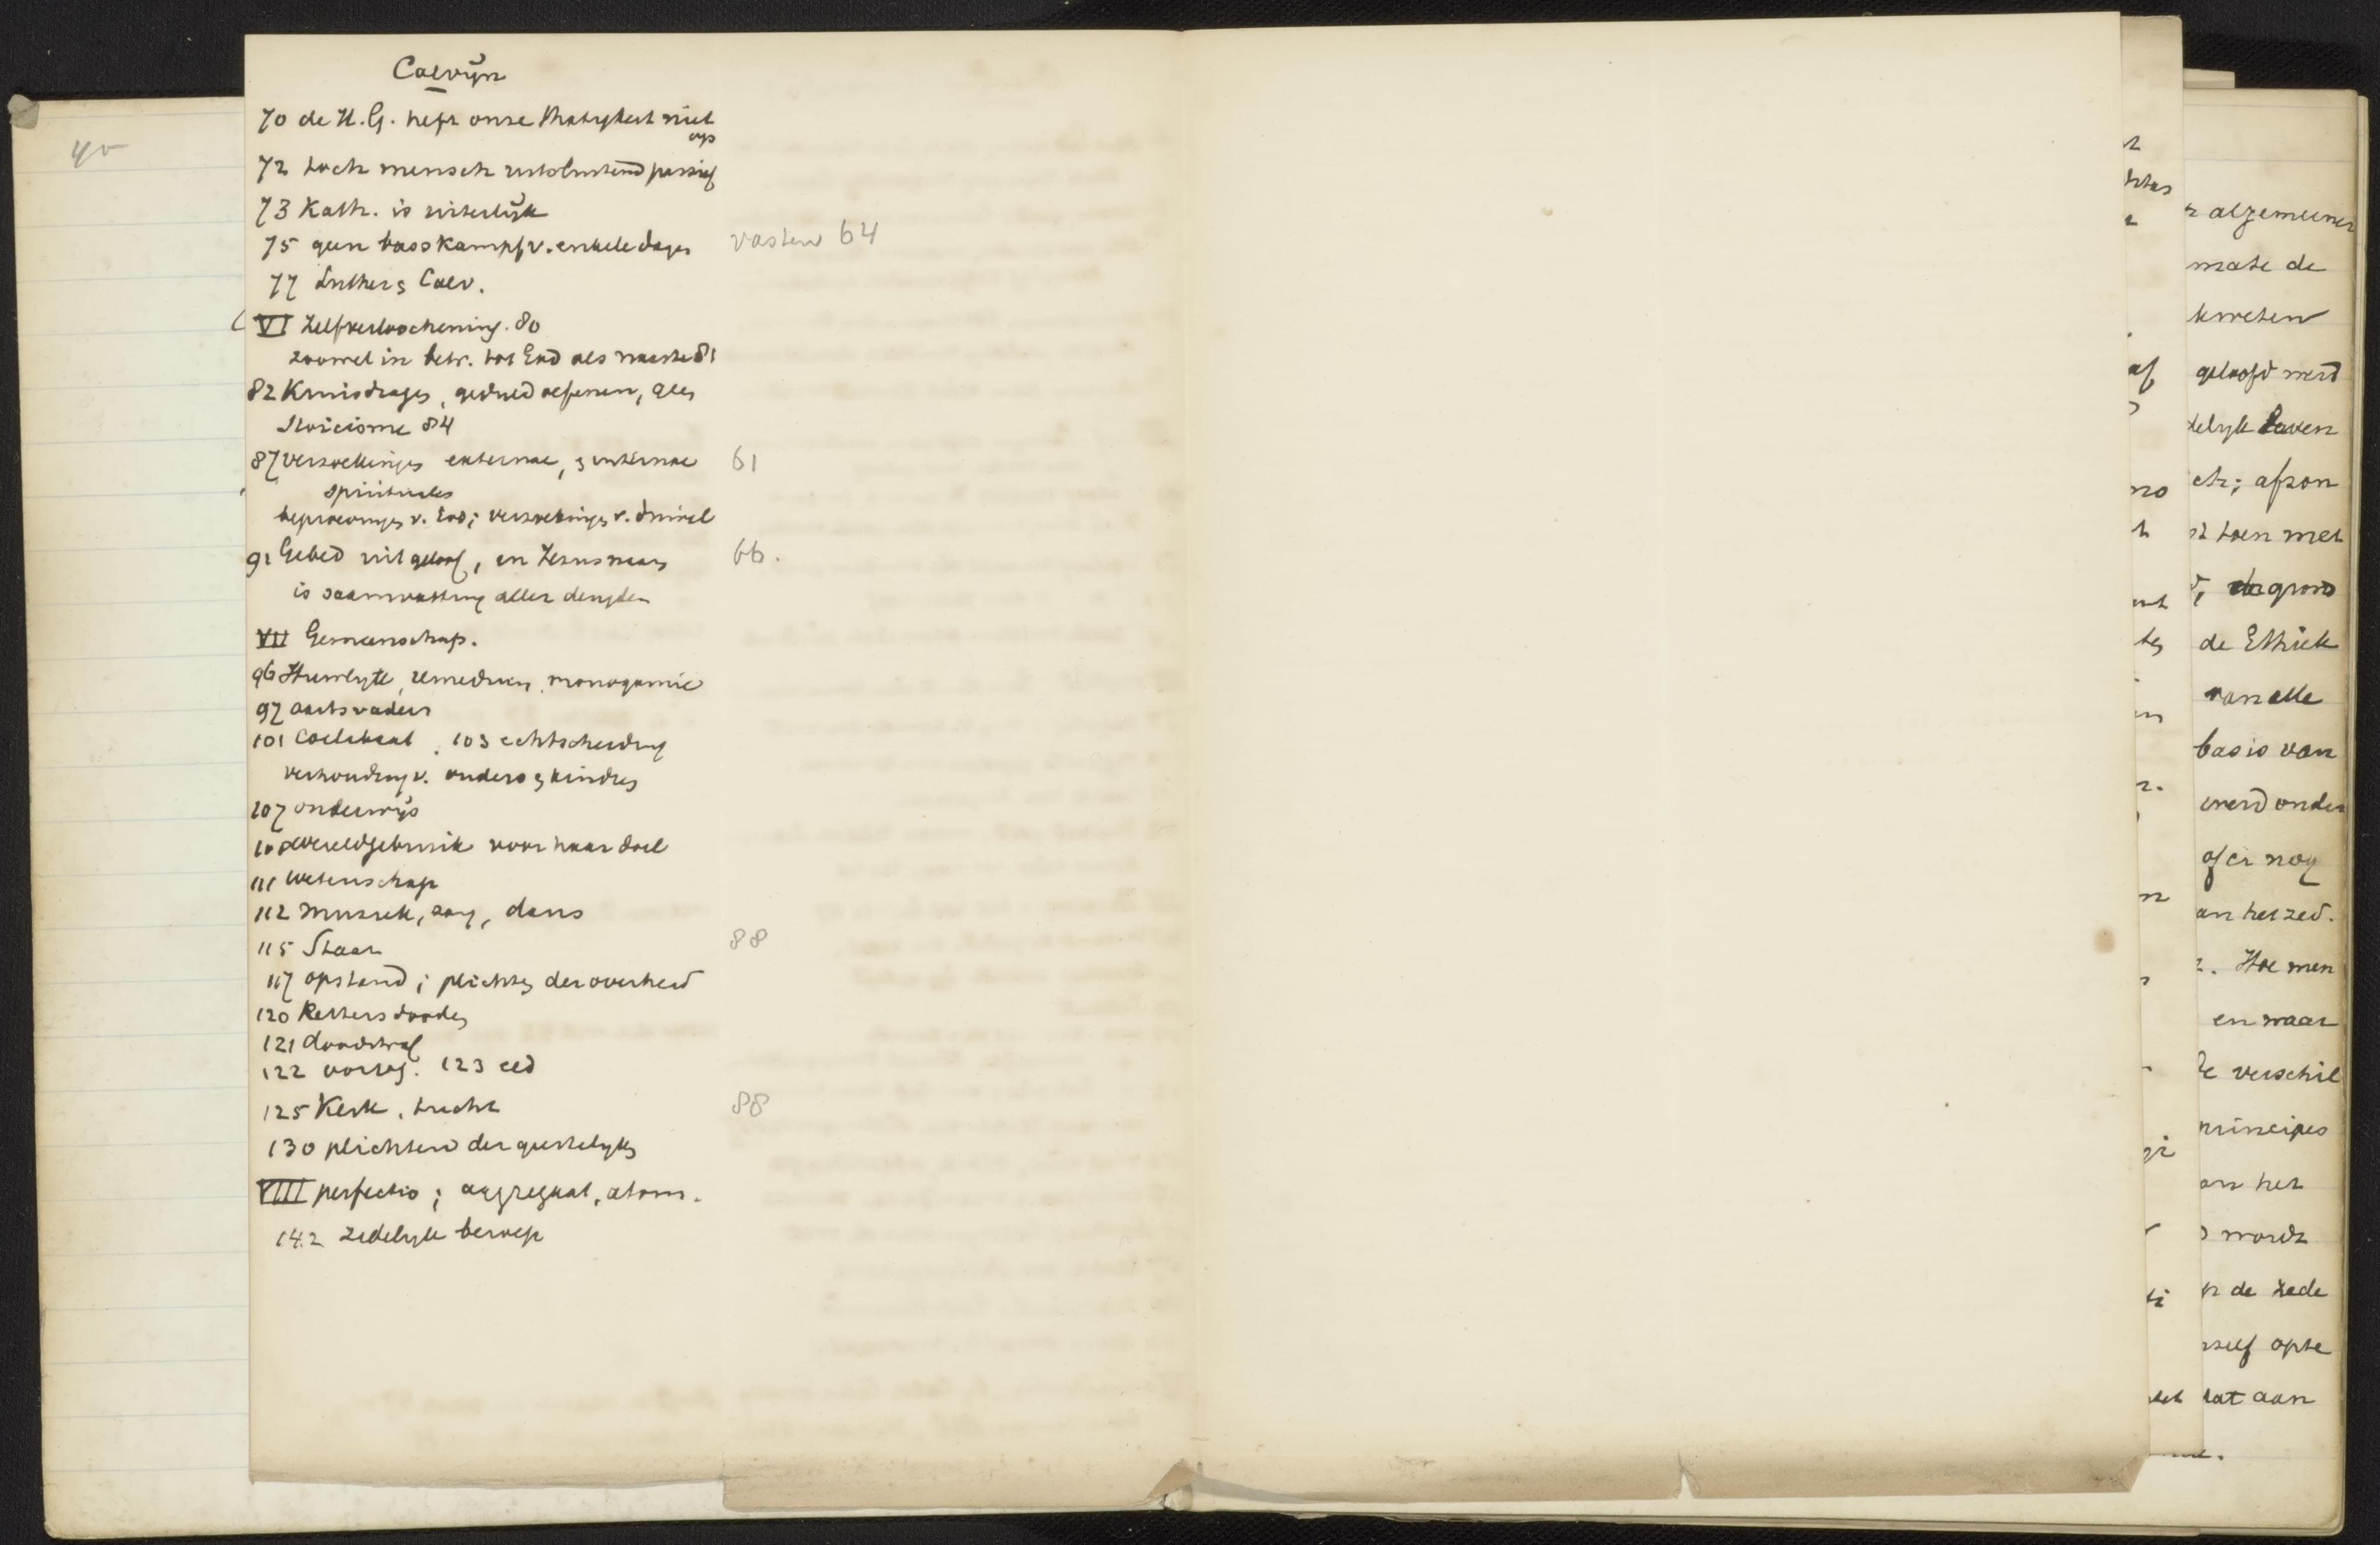 40
Calvijn
70 de H.G. heft onze thätigkeit niet
op
72 toch mensch uitsluitend passief
73 Kath. is uiterlijk
75 geen vasskampf v. enkele dagen vasten 64
77 Luther & Calv.
VI Zelfverloochening. 80
zoowel in betr. tot God als naaste 81
82 Kruisdragen, geduld oefenen, geen
Stoicisme 84
87 verzoekingen externae, & internae 61
spirituales
beproevingen v. God; verzoekingen v. duivel
91 Gebed uit geloof, in Jezus naam 66.
is saamvatting aller deugden
VII Gemeenschap.
96 Huwelijk, remedium, monogamie
97 aartsvaders
101 Coelibaat. 103 echtscheiding
verhouding v. ouders & kindren
107 onderwijs
108 wereldgebruik voor haar doel
111 wetenschap
112 muziek, zang, dans
115 Staat 88
117 opstand; plichten der overheid
120 Ketters dooden
121 doodstraf
122 oorlog. 123 eed
125 Kerk, tucht 88
130 plichten der geestelijken
VIII perfectio; aggregaat, atom.
142 zedelijk beroep
algemeenen
mate de
kweten
geloofd werd
delijk leven
ch; afzon
toen met
de grond
de Ethiek
van alle
basis van
werd onder
of er nog
an het zed.
Hoe men
en waar
de verschil
principes
an het
wordt
n de zede
zelf opte
dat aan